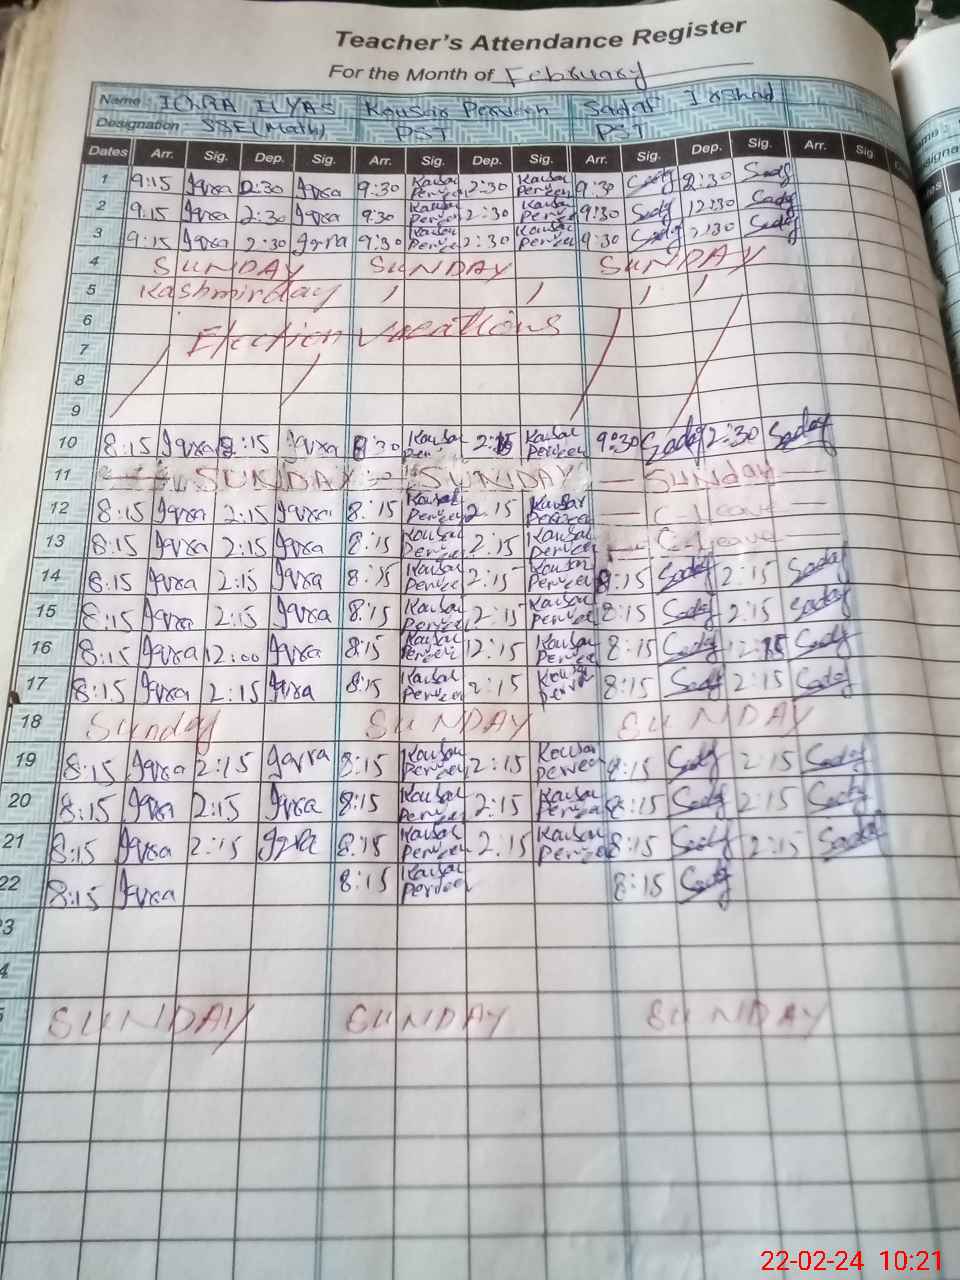 Teacher's Attendance Register
For the Month of February
Name: IQRA ILYAS Kausar Perveen Sadaf Irshad
Designation SSE(Math) PST PST
Dates Arr. Sig. Dep. Sig. Arr. Sig. Dep. Sig. Arr. Sig. Dep. Sig. Arr. Sig
1 9:15 Iqra 2:30 Iqra 9:30 Kausar Perveen 2:30 Kausar Perveen 9:30 Sadaf 2:30 Sadaf
2 9:15 Iqra 2:30 Iqra 9:30 Kausar Perveen 2:30 Kausar Perveen 9:30 Sadaf 12:30 Sadaf
3 9:15 Iqra 2:30 Iqra 9:30 Kausar Perveen 2:30 Kausar Perveen 9:30 Sadaf 2:30 Sadaf
4 SUNDAY SUNDAY SUNDAY
5 Kashmir day
6 Election vacations
7
8
9
10 8:15 Iqra 2:15 Iqra 8:30 Kausar Perveen 2:15 Kausar Perveen 9:30 Sadaf 2:30 Sadaf
11 SUNDAY SUNDAY — Sunday —
12 8:15 Iqra 2:15 Iqra 8:15 Kausar Perveen 2:15 Kausar Perveen — C-Leave —
13 8:15 Iqra 2:15 Iqra 8:15 Kausar Perveen 2:15 Kausar Perveen — C-Leave —
14 8:15 Iqra 2:15 Iqra 8:15 Kausar Perveen 2:15 Kausar Perveen 8:15 Sadaf 2:15 Sadaf
15 8:15 Iqra 2:15 Iqra 8:15 Kausar Perveen 2:15 Kausar Perveen 8:15 Sadaf 2:15 Sadaf
16 8:15 Iqra 12:00 Iqra 8:15 Kausar Perveen 12:15 Kausar Perveen 8:15 Sadaf 12:15 Sadaf
17 8:15 Iqra 2:15 Iqra 8:15 Kausar Perveen 2:15 Kausar Perveen 8:15 Sadaf 2:15 Sadaf
18 Sunday SUNDAY SUNDAY
19 8:15 Iqra 2:15 Iqra 8:15 Kausar Perveen 2:15 Kausar Perveen 8:15 Sadaf 2:15 Sadaf
20 8:15 Iqra 2:15 Iqra 8:15 Kausar Perveen 2:15 Kausar Perveen 8:15 Sadaf 2:15 Sadaf
21 8:15 Iqra 2:15 Iqra 8:15 Kausar Perveen 2:15 Kausar Perveen 8:15 Sadaf 2:15 Sadaf
22 8:15 Iqra 8:15 Kausar Perveen 8:15 Sadaf
3
4
SUNDAY SUNDAY SUNDAY
22-02-24 10:21